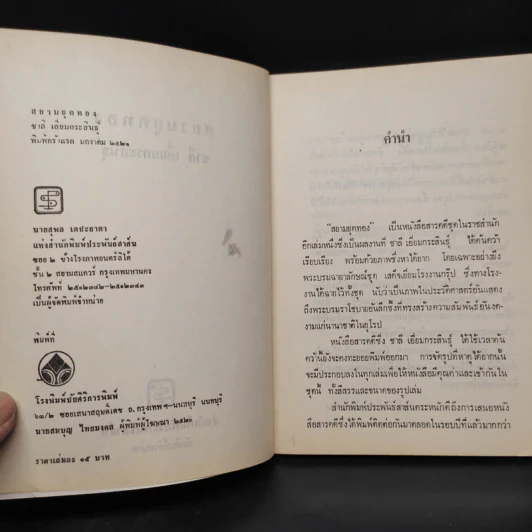 สยามยุคทอง
ชาลี เอี่ยมกระสินธุ์
พิมพ์ครั้งแรก มกราคม ๒๕๒๑
นายสุพล เตชะธาดา
แห่งสำนักพิมพ์ประพันธ์สาส์น
ซอย ๒ ข้างโรงภาพยนตร์ลิโด้
ชั้น ๒ สยามสแควร์ กรุงเทพมหานคร
โทรศัพท์
เป็นผู้จัดพิมพ์จำหน่าย
พิมพ์ที่
โรงพิมพ์
ซอยเสนาสฤษดิ์เดช ถ.กรุงเทพฯ-นนทบุรี นนทบุรี
นายสมบุญ ไทยมงคล ผู้พิมพ์ผู้โฆษณา ๒๕๒๑
ราคาเล่มละ ๑๕ บาท
คำนำ
"สยามยุคทอง" เป็นหนังสือสารคดีชุดในราชสำนัก
อีกเล่มหนึ่งซึ่งเป็นผลงานที่ ชาลี เอี่ยมกระสินธุ์ ได้ค้นคว้า
เรียบเรียง พร้อมด้วยภาพซึ่งหาได้ยาก โดยเฉพาะอย่างยิ่ง
พระบรมฉายาลักษณ์ชุด เสด็จเยี่ยมโรงงานกรุ๊ป ซึ่งทางโรง
งานได้ฉายไว้ทั้งชุด นับว่าเป็นภาพในประวัติศาสตร์อันแสดง
ถึงพระบรมราโชบายอันลึกซึ้งที่ทรงสร้างความสัมพันธ์อันงด
งามแก่นานาชาติในยุโรป
หนังสือสารคดีซึ่ง ชาลี เอี่ยมกระสินธุ์ ได้ใช้เวลาค้น
คว้านี้ยังจะคงทะยอยพิมพ์ออกมา การจัดรูปที่หาดูได้ยากนั้น
จะมีประกอบลงในทุกเล่มเพื่อให้หนังสือมีคุณค่าและเข้ากันใน
ชุดนี้ ทั้งสีสรรและขนาดของรูปเล่ม
สำนักพิมพ์ประพันธ์สาส์นตระหนักดีถึงการเสนอหนัง
สือสารคดีซึ่งได้พิมพ์ติดต่อกันมาตลอดในรอบปีที่แล้วมากกว่า